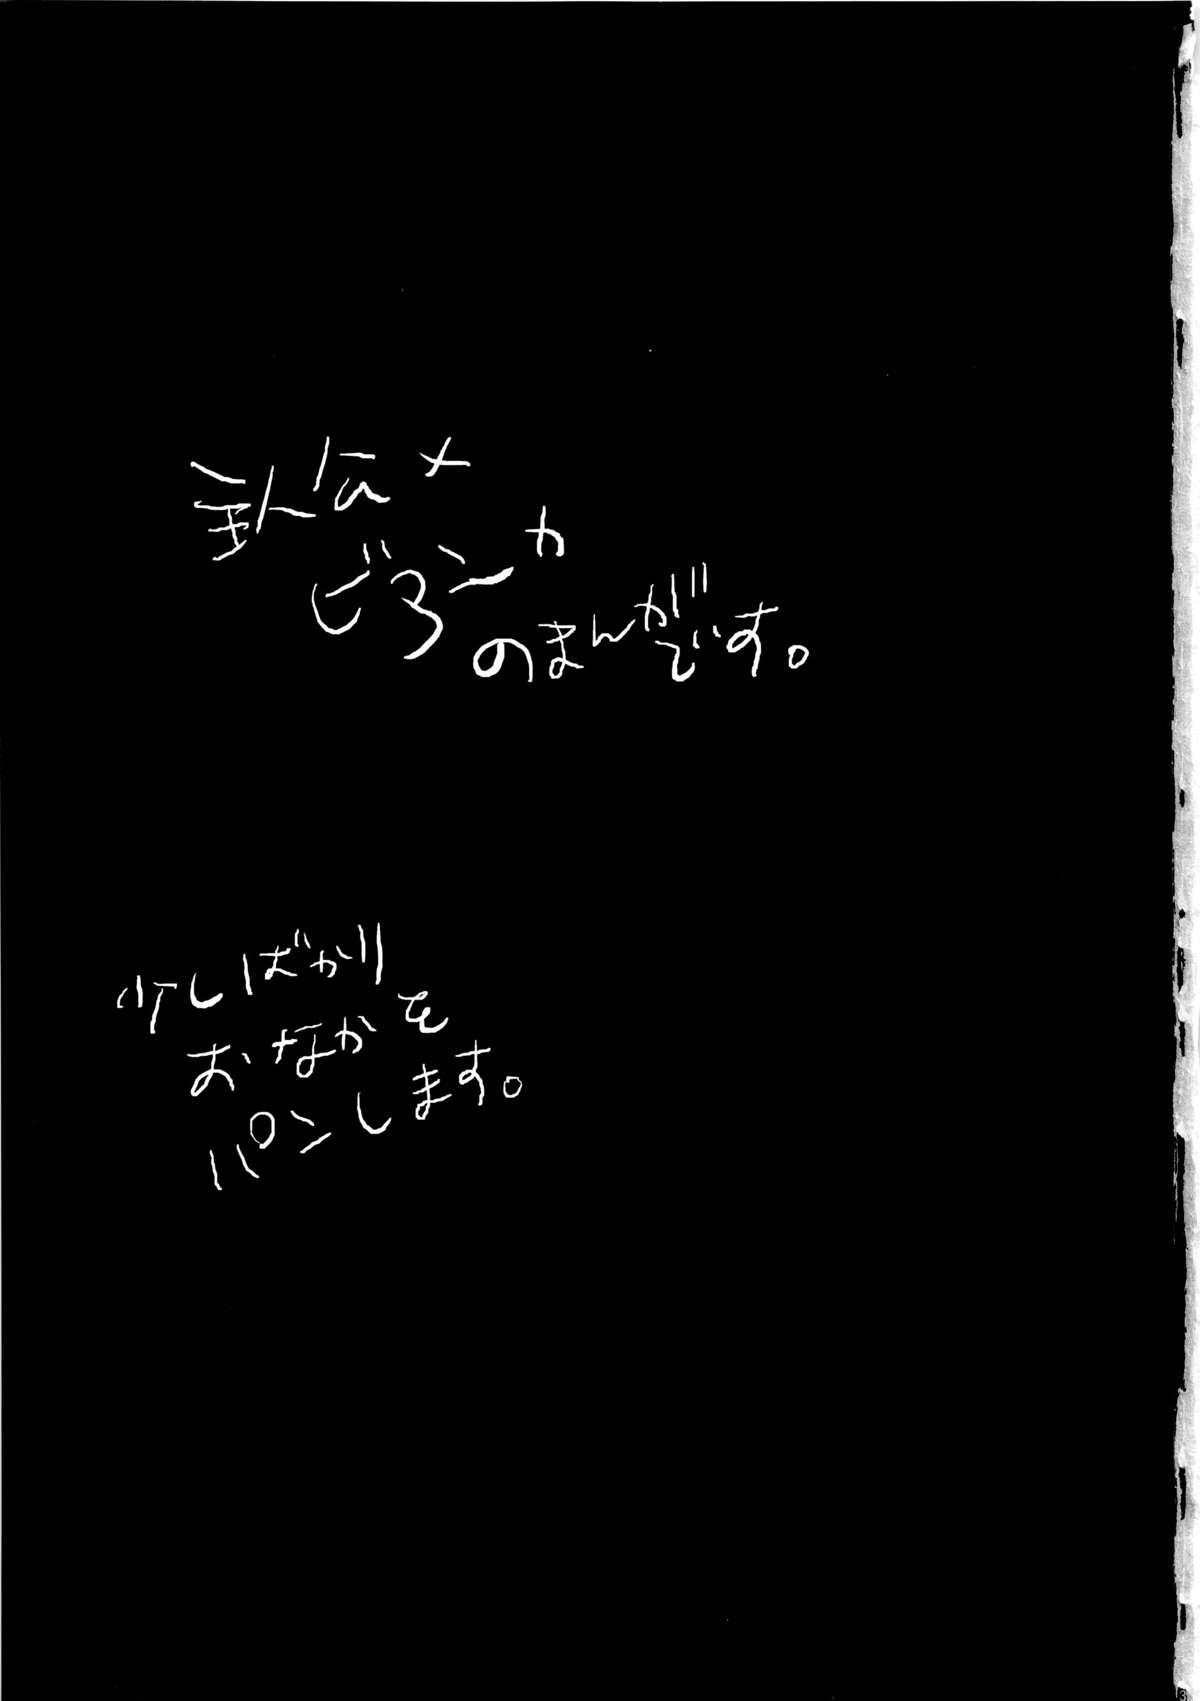 主人公×
ビアンカ
のまんがです。
少しばかり
おなかを
パンします。
3